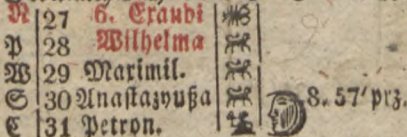 N 27 6. Exaudi
P 28 Wilhelma
W 29 Maximil.
S 30 Anastazyußa 8. 57' prz.
C 31 Petron.